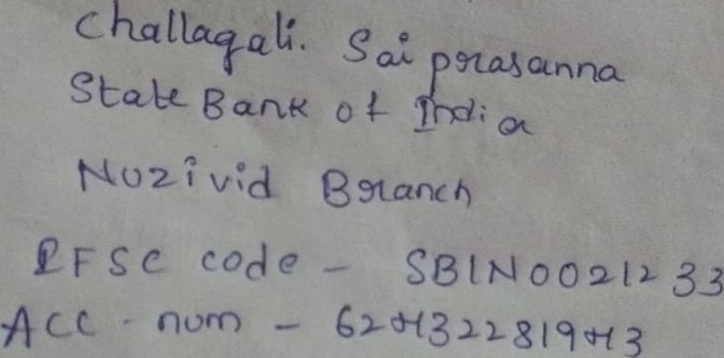 Challagali. Sai prasanna
State Bank of India
Nuzivid Branch
IFSC code - SBIN0021233
Acc - num -